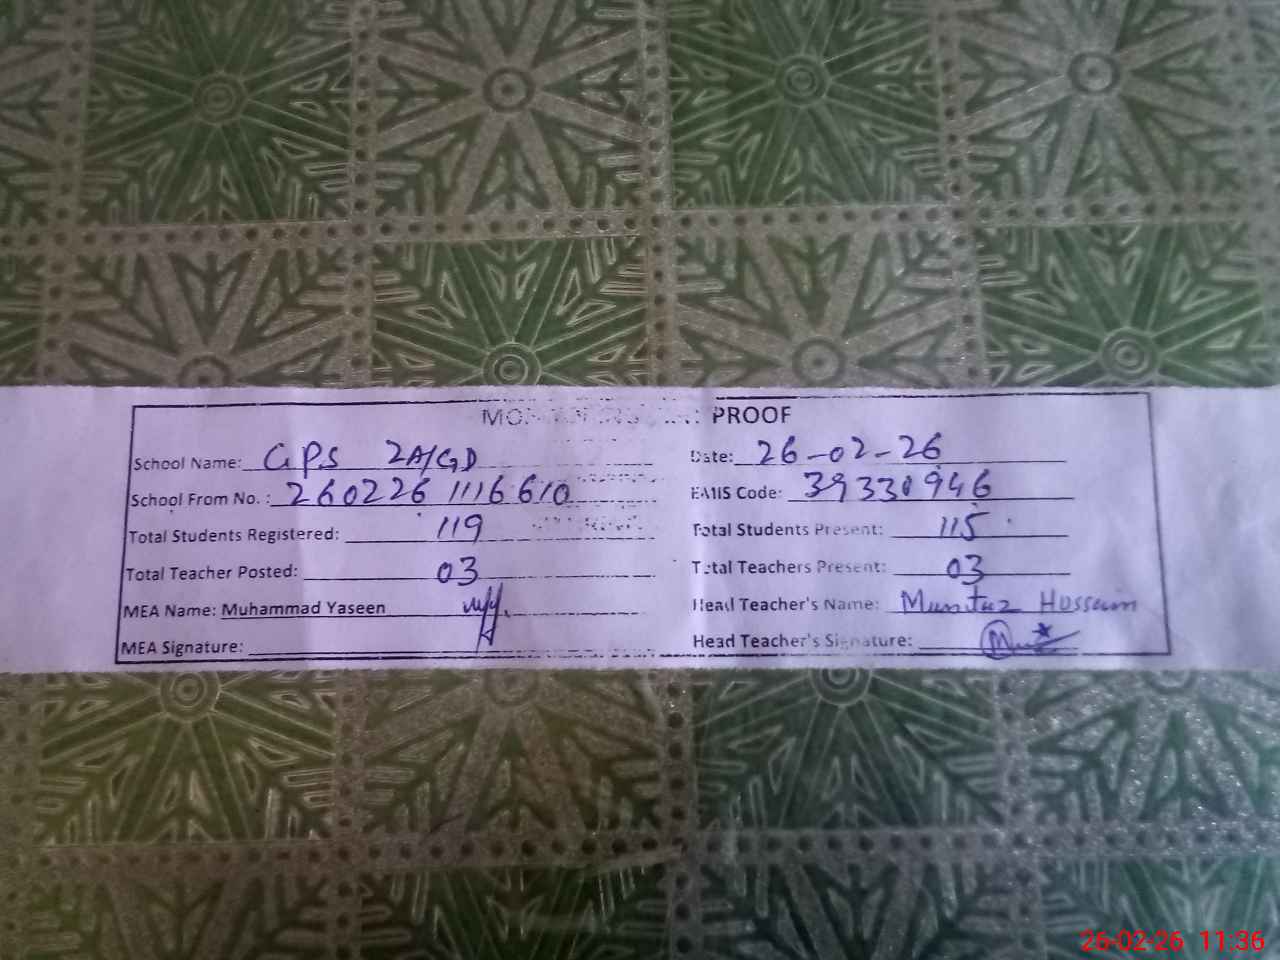 PROOF
School Name: GPS 2A/GD Date: 26-02-26
School From No. : 260226 1116610 EMIS Code: 39330946
Total Students Registered: 119 Total Students Present: 115
Total Teacher Posted: 03 Total Teachers Present: 03
MEA Name: Muhammad Yaseen Head Teacher's Name: Mumtaz Hussain
MEA Signature: Head Teacher's Signature:
26-02-26 11:36